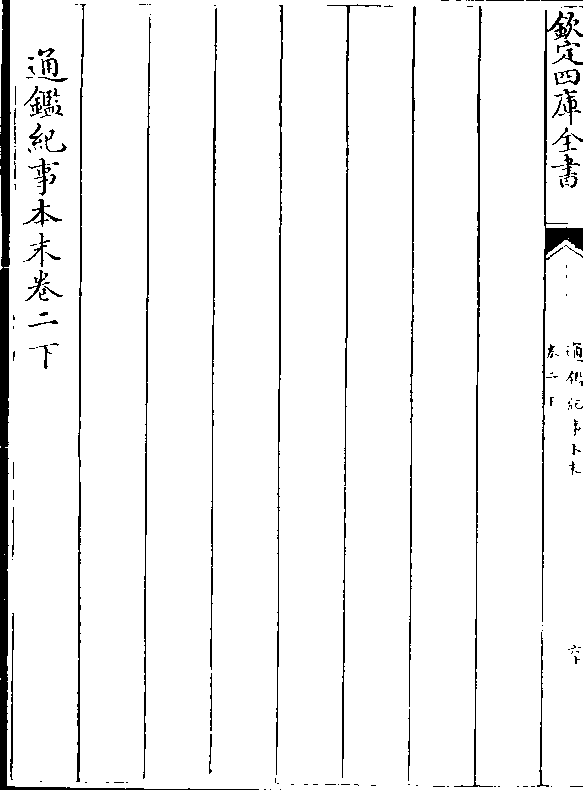 欽定四庫全書
通鑑紀事本末
卷二下
六十
通鑑紀事本末卷二下